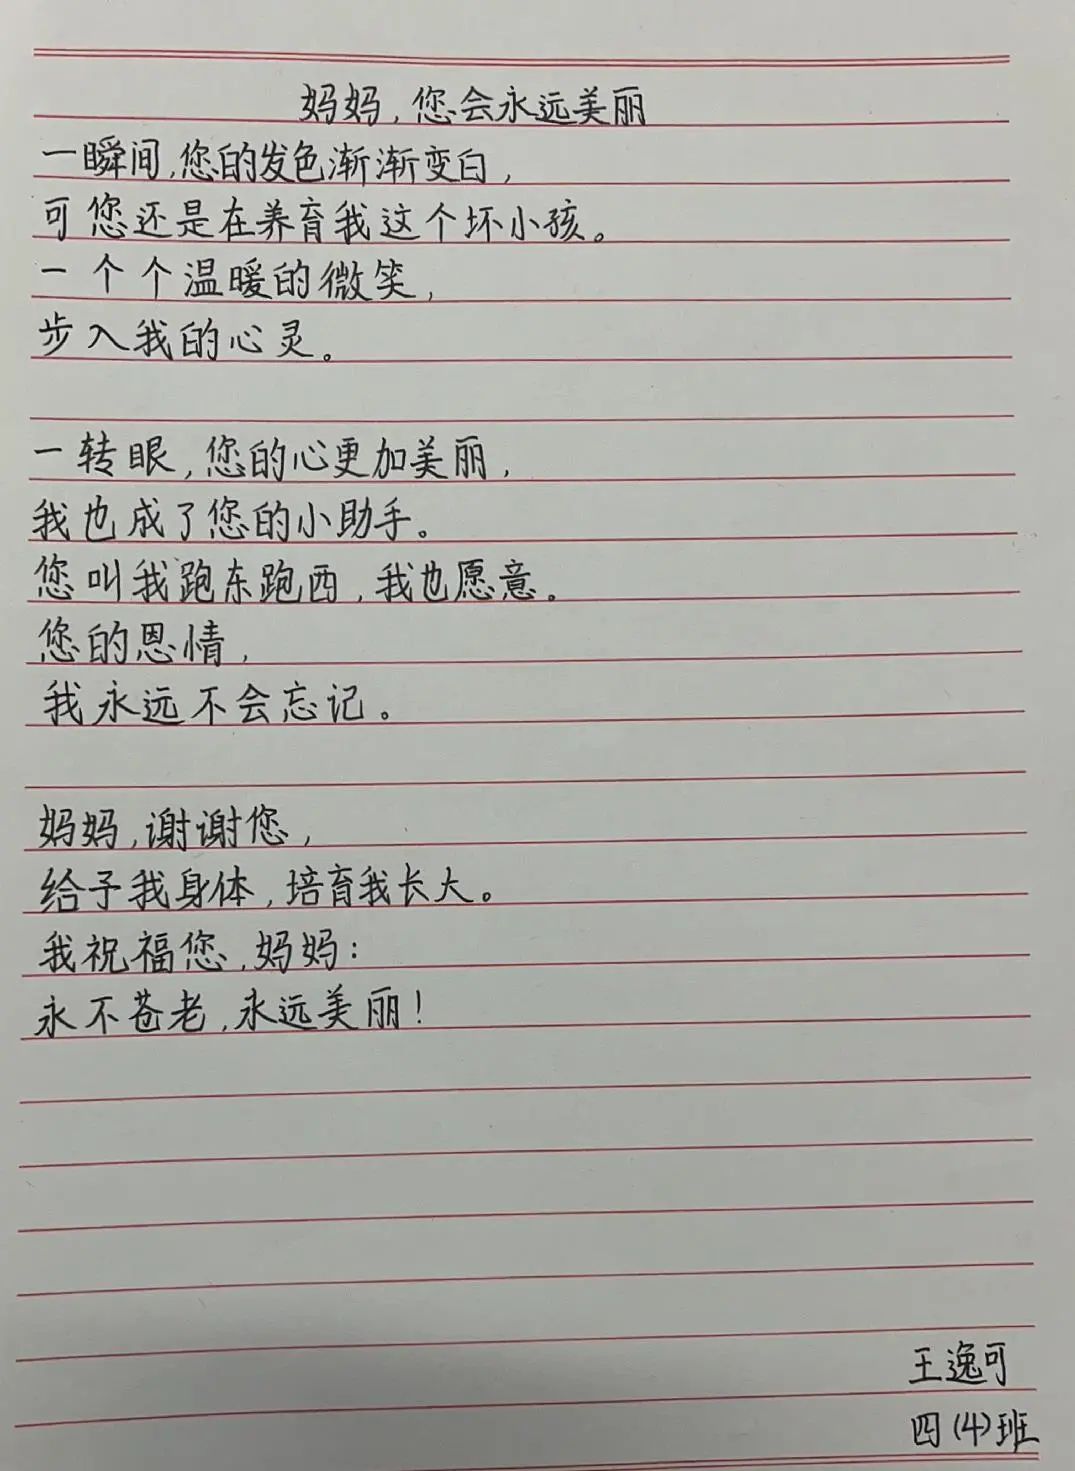 妈妈,您会永远美丽
一瞬间,您的发色渐渐变白,
可您还是在养育我这个坏小孩。
一个个温暖的微笑,
步入我的心灵。
一转眼,您的心更加美丽,
我也成了您的小助手。
您叫我跑东跑西,我也愿意。
您的恩情,
我永远不会忘记。
妈妈,谢谢您,
给予我身体,培育我长大。
我祝福您,妈妈:
永不苍老,永远美丽!
王逸可
四(4)班